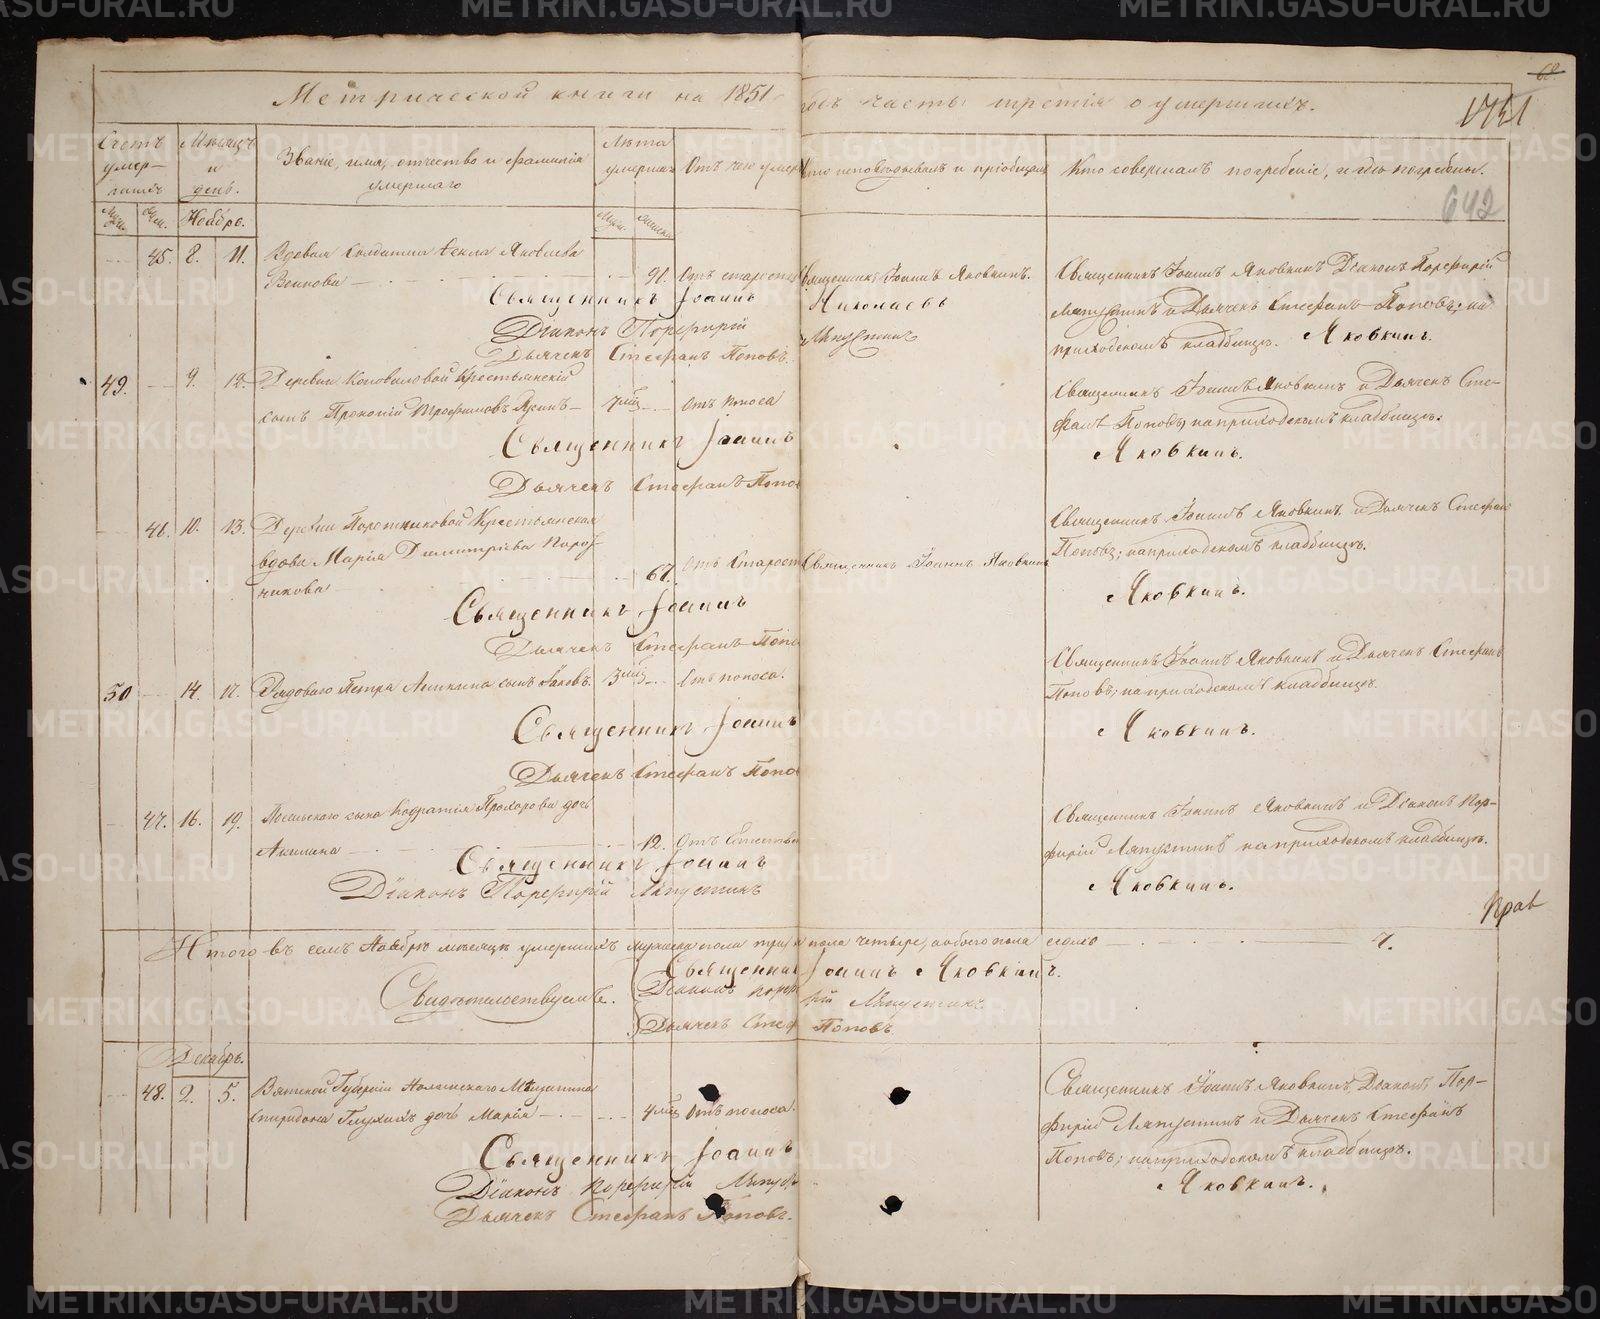 METRIKI.GASO-URAL.RU
Метрической книги на 1851 годъ часть третія о умершихъ.
68.
1751
642
Счетъ умершихъ
Мѣсяцъ и день.
Званіе, имя, отчество и фамилія умершаго
Лѣта умершаго
Отъ чего умеръ
Кто исповѣдывалъ и пріобщалъ
Кто совершалъ погребеніе, и гдѣ погребены.
Муж. Жен. Ноября. Муж. Женск.
45. 8. 11. Вдовая Солдатка Ѳекла Яковлева
91. Отъ старости Священникъ Іоаннъ Яковкинъ.
Священникъ Іоаннъ Яковкинъ Діаконъ Порфирій
Ляпустинъ и Дьячекъ Стефанъ Поповъ; на
приходскомъ кладбищѣ. Яковкинъ.
Священникъ Іоаннъ
Діаконъ Порфирій Ляпустинъ
Дьячекъ Стефанъ Поповъ.
49. 9. 12. Деревни Коноваловой Крестьянскій
сынъ Прокопій Трофимовъ
7 мѣс. Отъ поноса
Священникъ Іоаннъ Яковкинъ и Дьячекъ Сте-
фанъ Поповъ; на приходскомъ кладбищѣ.
Яковкинъ.
Священникъ Іоаннъ
Дьячекъ Стефанъ Попо
46. 10. 13. Деревни Поротниковой Крестьянская
вдова Марія Димитріева Порот-
никова
67. Отъ Старост Священникъ Іоаннъ Яковкинъ
Священникъ Іоаннъ Яковкинъ и Дьячекъ Стефан
Поповъ; на приходскомъ кладбищѣ.
Яковкинъ.
Священникъ Іоаннъ
Дьячекъ Стефанъ Попо
50 14. 17. Рядоваго Петра сынъ Іаковъ. 3 мѣс. Отъ поноса.
Священникъ Іоаннъ Яковкинъ и Дьячекъ Стефанъ
Поповъ; на приходскомъ кладбищѣ.
Яковкинъ.
Священникъ Іоаннъ
Дьячекъ Стефанъ Попо
47. 16. 19. сына Кодратія Прохорова дочь
Акилина
12.
Священникъ Іоаннъ Яковкинъ и Діаконъ Пор-
фирій Ляпустинъ на приходскомъ кладбищѣ.
Яковкинъ.
Священникъ Іоаннъ
Діаконъ Порфирій Ляпустинъ
Итого въ семъ Ноябрѣ мѣсяцѣ умершихъ мужеска пола три, пола четыре, а обоего пола седмь 7.
Свидѣтельствуемъ.
Священник Іоаннъ Яковкинъ.
Діаконъ Порфирій Ляпустинъ
Дьячекъ Стеф Поповъ
Декабрь.
48. 2. 5. Вятской Губерніи Нолинскаго Мѣщанина
Спиридона Глухихъ дочь Марія
4 мѣс. Отъ поноса.
Священникъ Іоаннъ Яковкинъ, Діаконъ Пор-
фирій Ляпустинъ и Дьячекъ Стефанъ
Поповъ; на приходскомъ кладбищѣ.
Яковкинъ.
Священникъ Іоаннъ
Діаконъ Порфирій Ляпус
Дьячекъ Стефанъ Поповъ.